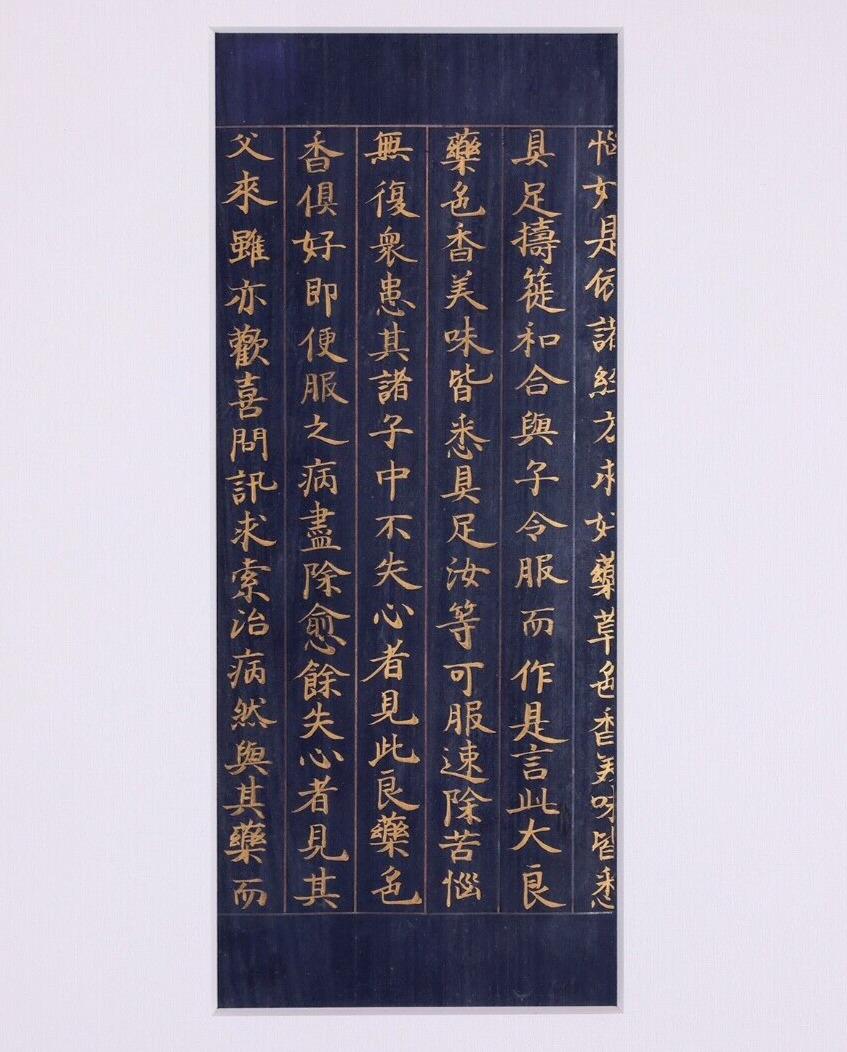 惱如是依諸經方求好藥草色香美味皆悉
具足擣篵和合與子令服而作是言此大良
藥色香美味皆悉具足汝等可服速除苦惱
無復衆患其諸子中不失心者見此良藥色
香俱好即便服之病盡除愈餘失心者見其
父來雖亦歡喜問訊求索治病然與其藥而